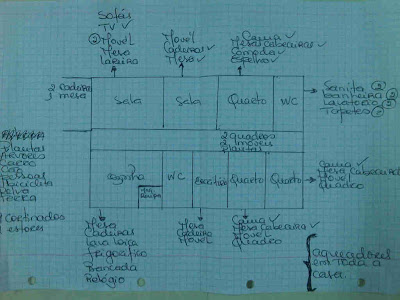 Sofás
TV ✓
② Móvel
Lareira
Móvel
Cadeiras ✓
Mesa ✓
Cama ✓
Mesas Cabeceiras ✓
Cómoda ✓
Espelho ✓
2 Cadeiras
1 mesa
Sala
Sala
Quarto
WC
Sanita ②
banheira ②
Lavatório ②
Tapetes ②
2 quadros
2 móveis
plantas
Plantas
Árvores
Carro
Cão
Pessoas
Bicicleta
Relva
Terra
Cortinados
estores
Cozinha
WC
Escritório
Quarto
Quarto
Cama ✓
Mesa Cabeceira
Móvel
Quadro
Mesa
Cadeiras
Lava loiça
Frigorífico
Bancada
Relógio
Mesa
Cadeira
Móvel
Cama ✓
Mesa Cabeceira ✓
Móvel ✓
Quadro
aquecedores
em toda a
casa